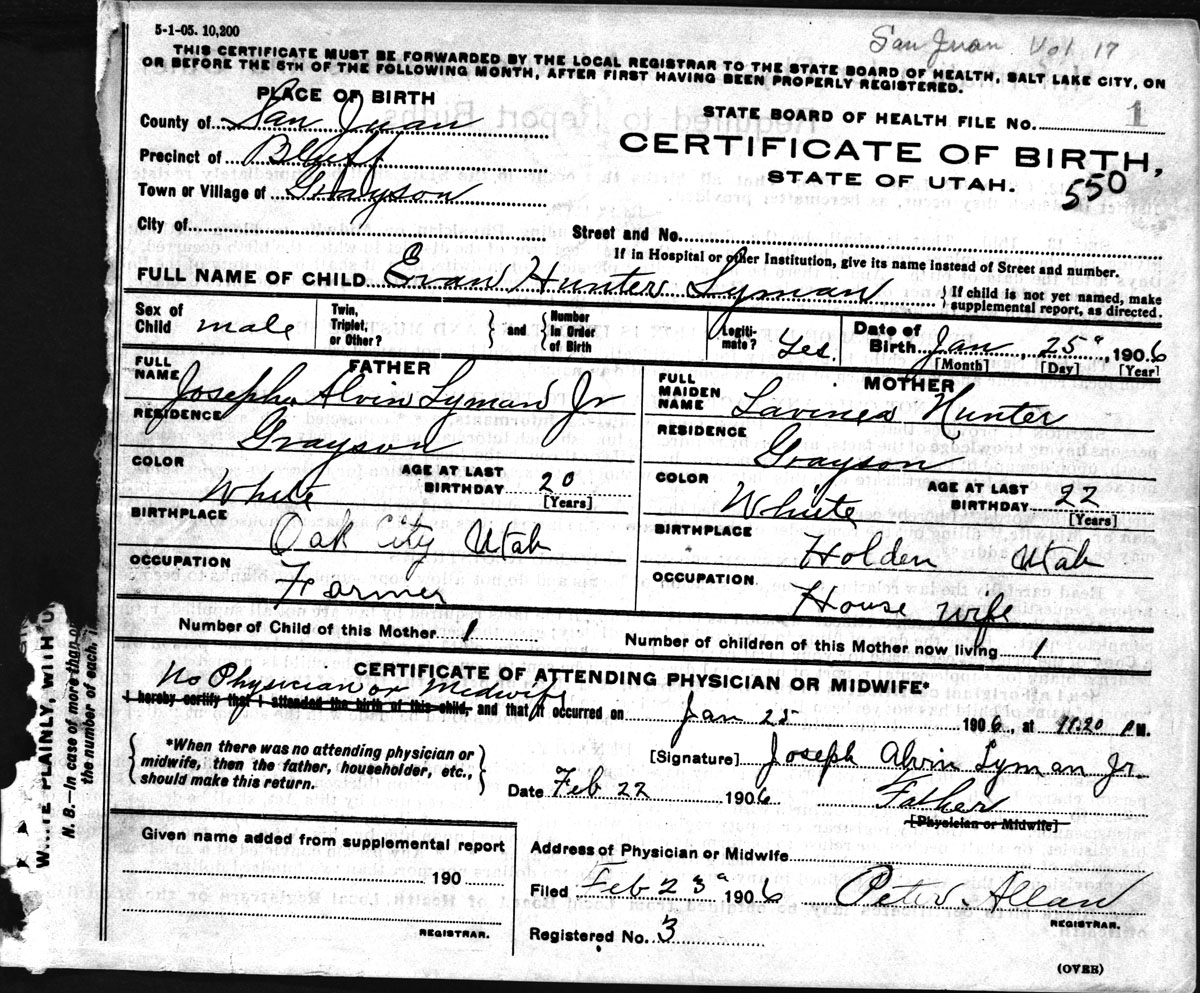 5-1-05. 10,200
San Juan Vol 17
THIS CERTIFICATE MUST BE FORWARDED BY THE LOCAL REGISTRAR TO THE STATE BOARD OF HEALTH, SALT LAKE CITY, ON
OR BEFORE THE 5TH OF THE FOLLOWING MONTH, AFTER FIRST HAVING BEEN PROPERLY REGISTERED.
PLACE OF BIRTH
County of San Juan
Precinct of Bluff
Town or Village of Grayson
City of
STATE BOARD OF HEALTH FILE NO. 1
CERTIFICATE OF BIRTH,
STATE OF UTAH.
550
Street and No.
If in Hospital or other Institution, give its name instead of Street and number.
FULL NAME OF CHILD Evan Hunter Lyman } If child is not yet named, make
supplemental report, as directed.
Sex of Child male Twin, Triplet, or Other? } and { Number in Order of Birth Legiti-mate? Yes. Date of Birth Jan 25", 1906
[Month] [Day] [Year]
FATHER
FULL NAME Joseph Alvin Lyman Jr
RESIDENCE Grayson
COLOR White AGE AT LAST BIRTHDAY 20
[Years]
BIRTHPLACE Oak City Utah
OCCUPATION Farmer
MOTHER
FULL MAIDEN NAME Lavinea Hunter
RESIDENCE Grayson
COLOR White AGE AT LAST BIRTHDAY 22
[Years]
BIRTHPLACE Holden Utah
OCCUPATION House wife
Number of Child of this Mother 1 Number of children of this Mother now living 1
CERTIFICATE OF ATTENDING PHYSICIAN OR MIDWIFE.*
No Physician or Midwife
I hereby certify that I attended the birth of this child, and that it occurred on Jan 25 1906, at 11.20 P M.
{ *When there was no attending physician or
midwife, then the father, householder, etc.,
should make this return. }
[Signature] Joseph Alvin Lyman Jr.
Date Feb 22 1906 Father
[Physician or Midwife]
Given name added from supplemental report
190
REGISTRAR.
Address of Physician or Midwife
Filed Feb 23 1906 Peter Allan
REGISTRAR.
Registered No. 3
(OVER)
PLAINLY, WITH
N. B.—In case of more than
the number of each,